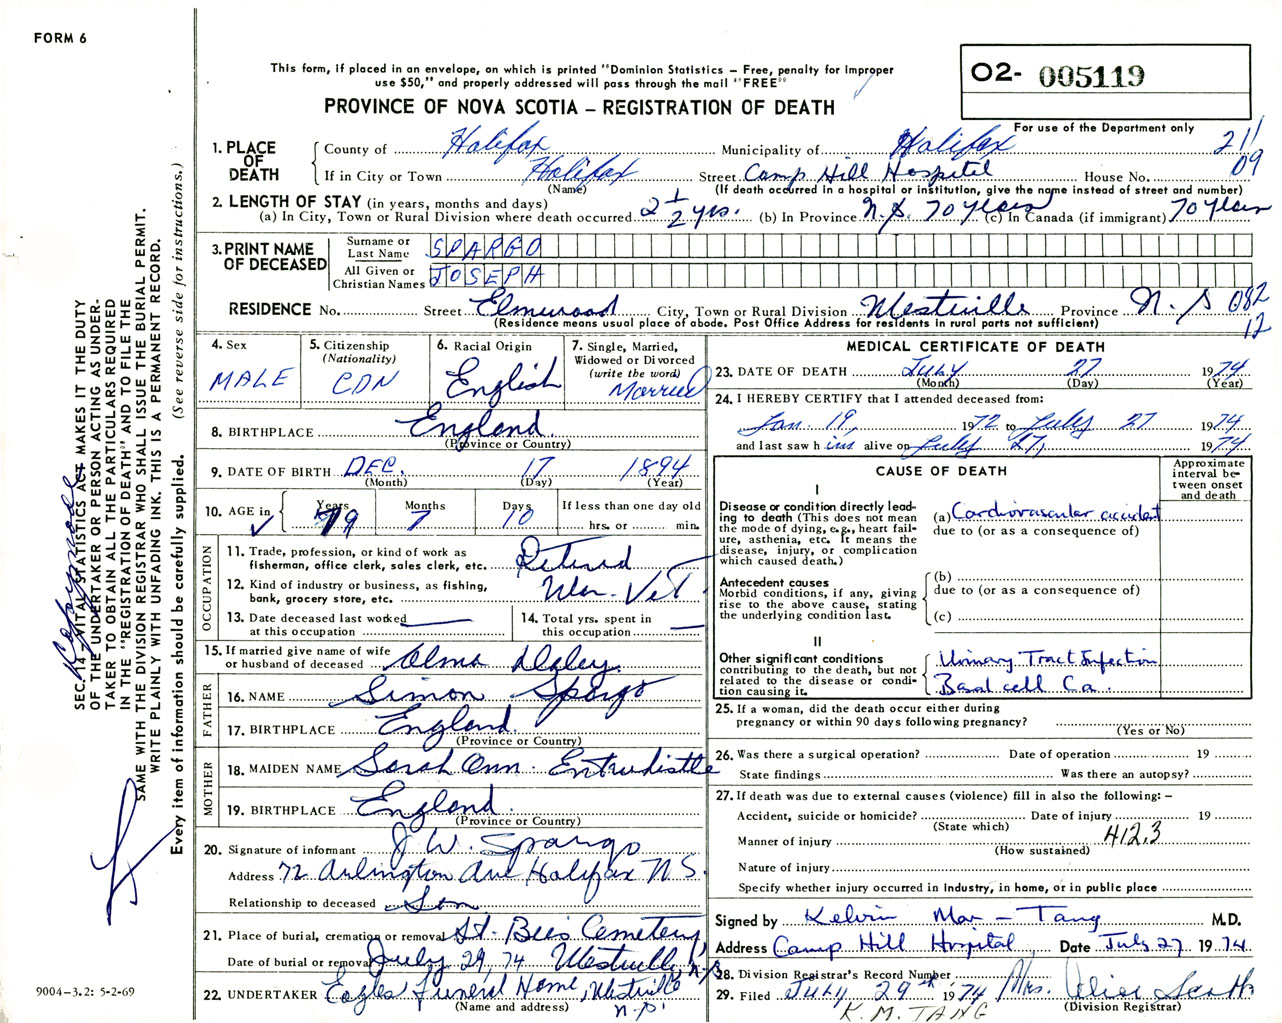 FORM 6
This form, if placed in an envelope, on which is printed "Dominion Statistics – Free, penalty for improper
use $50," and properly addressed will pass through the mail "FREE"
PROVINCE OF NOVA SCOTIA – REGISTRATION OF DEATH
02- 005119
For use of the Department only
211
09
1. PLACE OF DEATH
County of Halifax Municipality of Halifax
If in City or Town Halifax Street Camp Hill Hospital House No.
(Name) (If death occurred in a hospital or institution, give the name instead of street and number)
2. LENGTH OF STAY (in years, months and days)
(a) In City, Town or Rural Division where death occurred 2 1/2 yrs. (b) In Province N.S. 70 years (c) In Canada (if immigrant) 70 years
3. PRINT NAME OF DECEASED
Surname or Last Name SPARGO
All Given or Christian Names JOSEPH
RESIDENCE No. Street Elmwood City, Town or Rural Division Westville Province N.S 082
(Residence means usual place of abode. Post Office Address for residents in rural parts not sufficient) 12
4. Sex
MALE
5. Citizenship
(Nationality)
CDN
6. Racial Origin
English
7. Single, Married,
Widowed or Divorced
(write the word)
Married
8. BIRTHPLACE England
(Province or Country)
9. DATE OF BIRTH DEC. 17 1894
(Month) (Day) (Year)
10. AGE in
Years Months Days If less than one day old
79 7 10 hrs. or min.
OCCUPATION
11. Trade, profession, or kind of work as
fisherman, office clerk, sales clerk, etc. Retired
12. Kind of industry or business, as fishing,
bank, grocery store, etc. War-Vet
13. Date deceased last worked
at this occupation
14. Total yrs. spent in
this occupation
15. If married give name of wife
or husband of deceased Alma Daley
FATHER
16. NAME Simon Spargo
17. BIRTHPLACE England
(Province or Country)
MOTHER
18. MAIDEN NAME Sarah Ann Entwhistle
19. BIRTHPLACE England
(Province or Country)
20. Signature of informant J. W. Spargo
Address 72 Arlington Ave Halifax N S.
Relationship to deceased Son
21. Place of burial, cremation or removal St. Bees Cemetery,
Date of burial or removal July 29, 74 Westville, N.S.
22. UNDERTAKER Eagles Funeral Home, Westville
(Name and address) N.S.
MEDICAL CERTIFICATE OF DEATH
23. DATE OF DEATH July 27 1974
(Month) (Day) (Year)
24. I HEREBY CERTIFY that I attended deceased from:
Jan. 19, 1972 to July 27 1974
and last saw him alive on July 27, 1974
CAUSE OF DEATH
Approximate
interval be-
tween onset
and death
I
Disease or condition directly lead-
ing to death (This does not mean
the mode of dying, e.g., heart fail-
ure, asthenia, etc. It means the
disease, injury, or complication
which caused death.)
(a) Cardiovascular accident
due to (or as a consequence of)
Antecedent causes
Morbid conditions, if any, giving
rise to the above cause, stating
the underlying condition last.
(b)
due to (or as a consequence of)
(c)
II
Other significant conditions
contributing to the death, but not
related to the disease or condi-
tion causing it.
Urinary Tract Infection
Basal cell Ca.
25. If a woman, did the death occur either during
pregnancy or within 90 days following pregnancy?
(Yes or No)
26. Was there a surgical operation? Date of operation 19
State findings Was there an autopsy?
27. If death was due to external causes (violence) fill in also the following: –
Accident, suicide or homicide? Date of injury 19
(State which)
Manner of injury 412.3
(How sustained)
Nature of injury
Specify whether injury occurred in industry, in home, or in public place
Signed by Kelvin Mar-Tang M.D.
Address Camp Hill Hospital Date July 27 1974
28. Division Registrar's Record Number
29. Filed JULY 29th 1974 Mrs. Alice Scott
(Division Registrar)
K. M. TANG
SEC. 14 – VITAL STATISTICS ACT MAKES IT THE DUTY
OF THE UNDERTAKER OR PERSON ACTING AS UNDER-
TAKER TO OBTAIN ALL THE PARTICULARS REQUIRED
IN THE "REGISTRATION OF DEATH" AND TO FILE THE
SAME WITH THE DIVISION REGISTRAR WHO SHALL ISSUE THE BURIAL PERMIT.
WRITE PLAINLY WITH UNFADING INK. THIS IS A PERMANENT RECORD.
Every item of information should be carefully supplied. (See reverse side for instructions.)
9004-3.2: 5-2-69